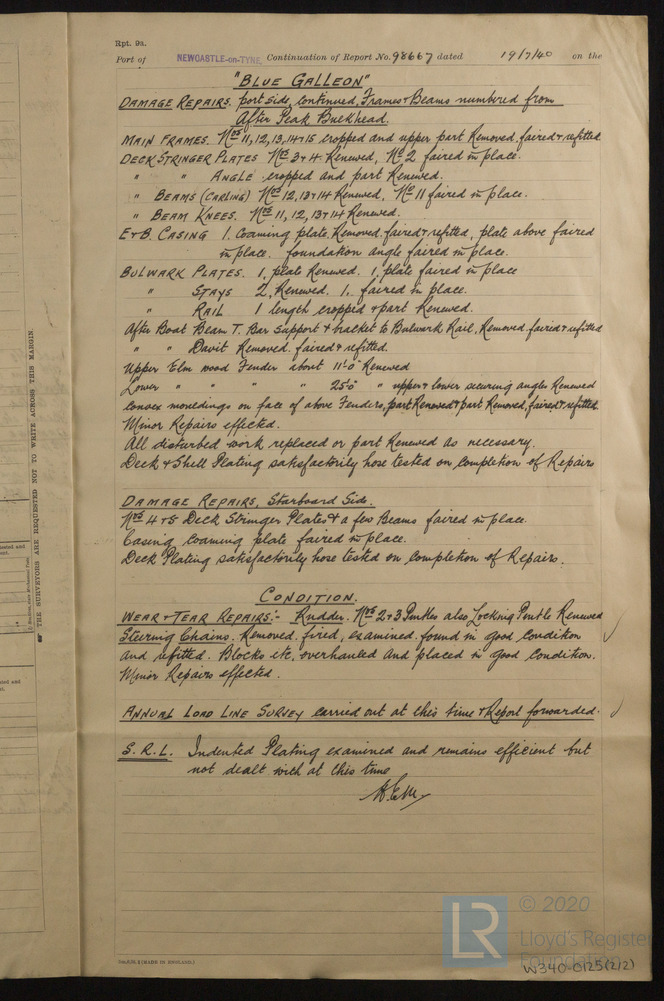 Rpt. 9a.
Port of NEWCASTLE-on-TYNE, Continuation of Report No. 98667 dated 19/7/40 on the
"BLUE GALLEON"
DAMAGE REPAIRS. port side, continued, Frames & Beams numbered from
After Peak Bulkhead.
MAIN FRAMES. Nos 11, 12, 13, 14 & 15 cropped and upper part Removed, faired & refitted.
DECK STRINGER PLATES Nos 3 & 4 Renewed, No 2 faired in place.
" " ANGLE cropped and part Renewed.
" BEAMS (CARLING) Nos 12, 13 & 14 Renewed, No 11 faired in place.
" BEAM KNEES. Nos 11, 12, 13 & 14 Renewed.
E & B. CASING 1. Coaming plate Removed, faired & refitted, plate above faired
in place. foundation angle faired in place.
BULWARK PLATES. 1, plate Renewed. 1, plate faired in place
" STAYS 2, Renewed. 1, faired in place.
" RAIL 1 length cropped & part Renewed.
After Boat Beam T. Bar Support & bracket to Bulwark Rail, Removed faired & refitted
" " Davit Removed, faired & refitted.
Upper Elm wood Fender about 11'-0" Renewed
Lower " " " " 25'-0" " upper & lower securing angles Renewed
convex mouldings on face of above Fenders, part Renewed & part Removed, faired & refitted.
Minor Repairs effected.
All disturbed work replaced or part Renewed as necessary.
Deck & Shell Plating satisfactorily hose tested on completion of Repairs
DAMAGE REPAIRS, Starboard Side.
Nos 4 & 5 Deck Stringer Plates & a few Beams faired in place
Casing coaming plate faired in place.
Deck Plating satisfactorily hose tested on completion of Repairs.
CONDITION.
WEAR & TEAR REPAIRS:- Rudder. Nos 2 & 3 Pintles also Locking Pintle Renewed
Steering Chains. Removed, fired, examined, found in good condition
and refitted. Blocks etc. overhauled and placed in good condition.
Minor Repairs effected.
ANNUAL LOAD LINE SURVEY carried out at this time & Report forwarded.
S.R.L. Indented Plating examined and remains efficient but
not dealt with at this time
THE SURVEYORS ARE REQUESTED NOT TO WRITE ACROSS THIS MARGIN.
(MADE IN ENGLAND.)
LR
© 2020
Lloyd's Register
Foundation
W340-0125(2/2)